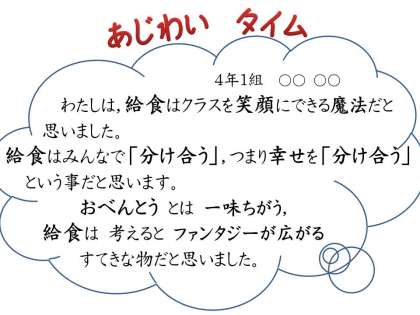 あじわい タイム
4年1組 ○○ ○○
わたしは,給食はクラスを笑顔にできる魔法だと
思いました。
給食はみんなで「分け合う」,つまり幸せを「分け合う」
という事だと思います。
おべんとう とは 一味ちがう,
給食は 考えると ファンタジーが広がる
すてきな物だと思いました。